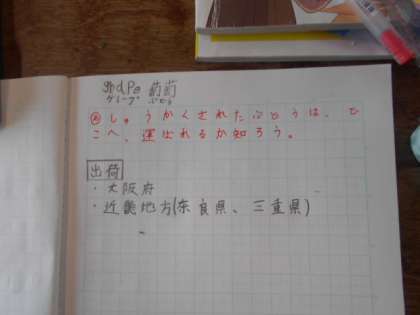 grape 葡萄
グレープ ぶどう
めしゅうかくされたぶどうは、ど
こへ、運ばれるか知ろう。
出荷
・大阪府
・近畿地方(奈良県、三重県)